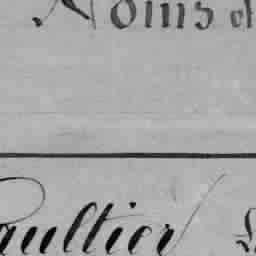 Noms et
Gaultier